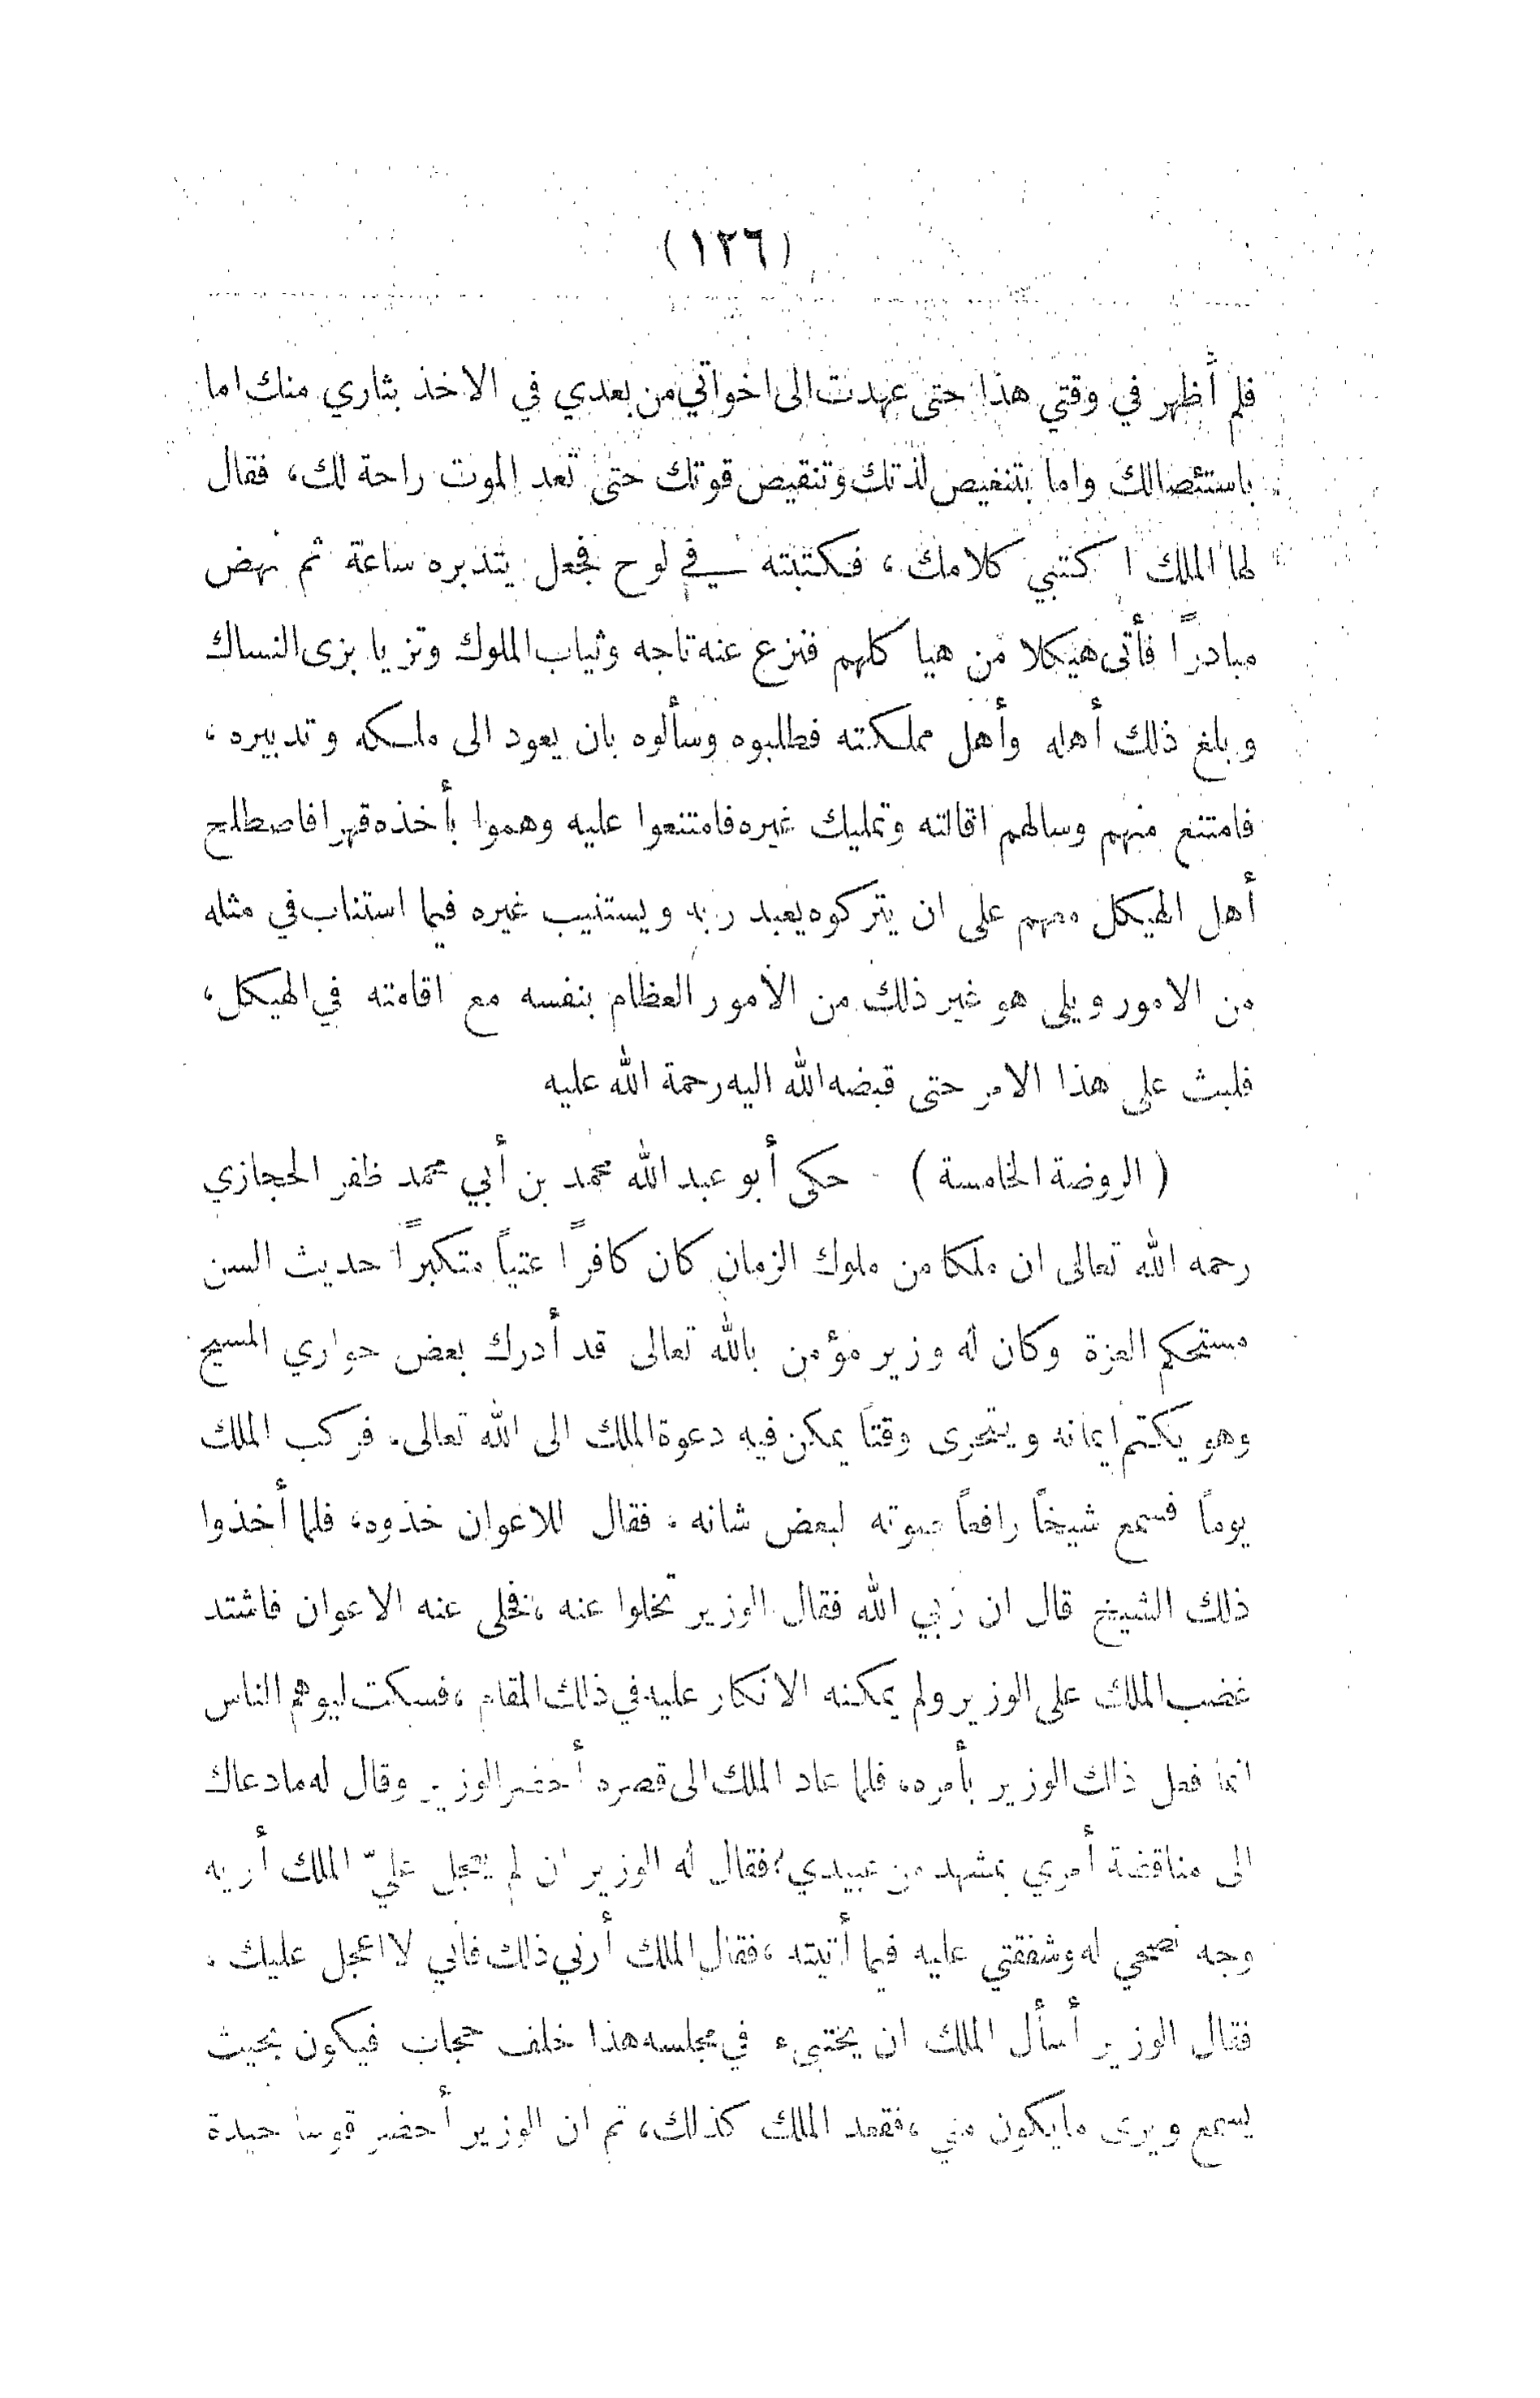 (١٢٦)
فلم أظهر في وقتي هذا حتى عهدت الى اخواتي من بعدي في الاخذ بثاري منك اما
باستئصالك واما بتنغيص لذتك وتنقيص قوتك حتى تعد الموت راحة لك، فقال
لها الملك اكتبي كلامك، فكتبته في لوح فجعل يتدبره ساعة ثم نهض
مبادراً فأتى هيكلا من هياكلهم فنزع عنه تاجه وثياب الملوك وتزيا بزى النساك
وبلغ ذلك أهله وأهل مملكته فطلبوه وسألوه بان يعود الى ملكه وتدبيره،
فامتنع منهم وسالهم اقالته وتمليك غيره فامتنعوا عليه وهموا بأخذه قهرا فاصطلح
أهل الهيكل معهم على ان يتركوه يعبد ربه ويستنيب غيره فيما استناب في مثله
من الامور ويلى هو غير ذلك من الأمور العظام بنفسه مع اقامته في الهيكل،
فلبث على هذا الامر حتى قبضه الله اليه رحمة الله عليه
(الروضة الخامسة) - حكى أبو عبد الله محمد بن أبي محمد ظفر الحجازي
رحمه الله تعالى ان ملكا من ملوك الزمان كان كافراً عتياً متكبراً حديث السن
مستحكم العزة وكان له وزير مؤمن بالله تعالى قد أدرك بعض حواري المسيح
وهو يكتم ايمانه ويتحرى وقتاً يمكن فيه دعوة الملك الى الله تعالى، فركب الملك
يوماً فسمع شيخاً رافعاً صوته لبعض شانه، فقال للاعوان خذوه، فلما أخذوا
ذلك الشيخ قال ان ربي الله فقال الوزير تخلوا عنه، فخلى عنه الاعوان فاشتد
غضب الملك على الوزير ولم يمكنه الانكار عليه في ذلك المقام، فسكت ليوهم الناس
انما فعل ذلك الوزير بأمره، فلما عاد الملك الى قصره أحضر الوزير وقال له مادعاك
الى مناقضة أمري بمشهد من عبيدي؟ فقال له الوزير ان لم يعجل عليّ الملك أريه
وجه نصحي له وشفقتي عليه فيما أتيته، فقال الملك أرني ذلك فاني لا اعجل عليك.
فقال الوزير أسأل الملك ان يختبىء في مجلسه هذا خلف حجاب فيكون بحيث
يسمع ويرى مايكون مني، فقعد الملك كذلك، ثم ان الوزير أحضر قوسا جيدة